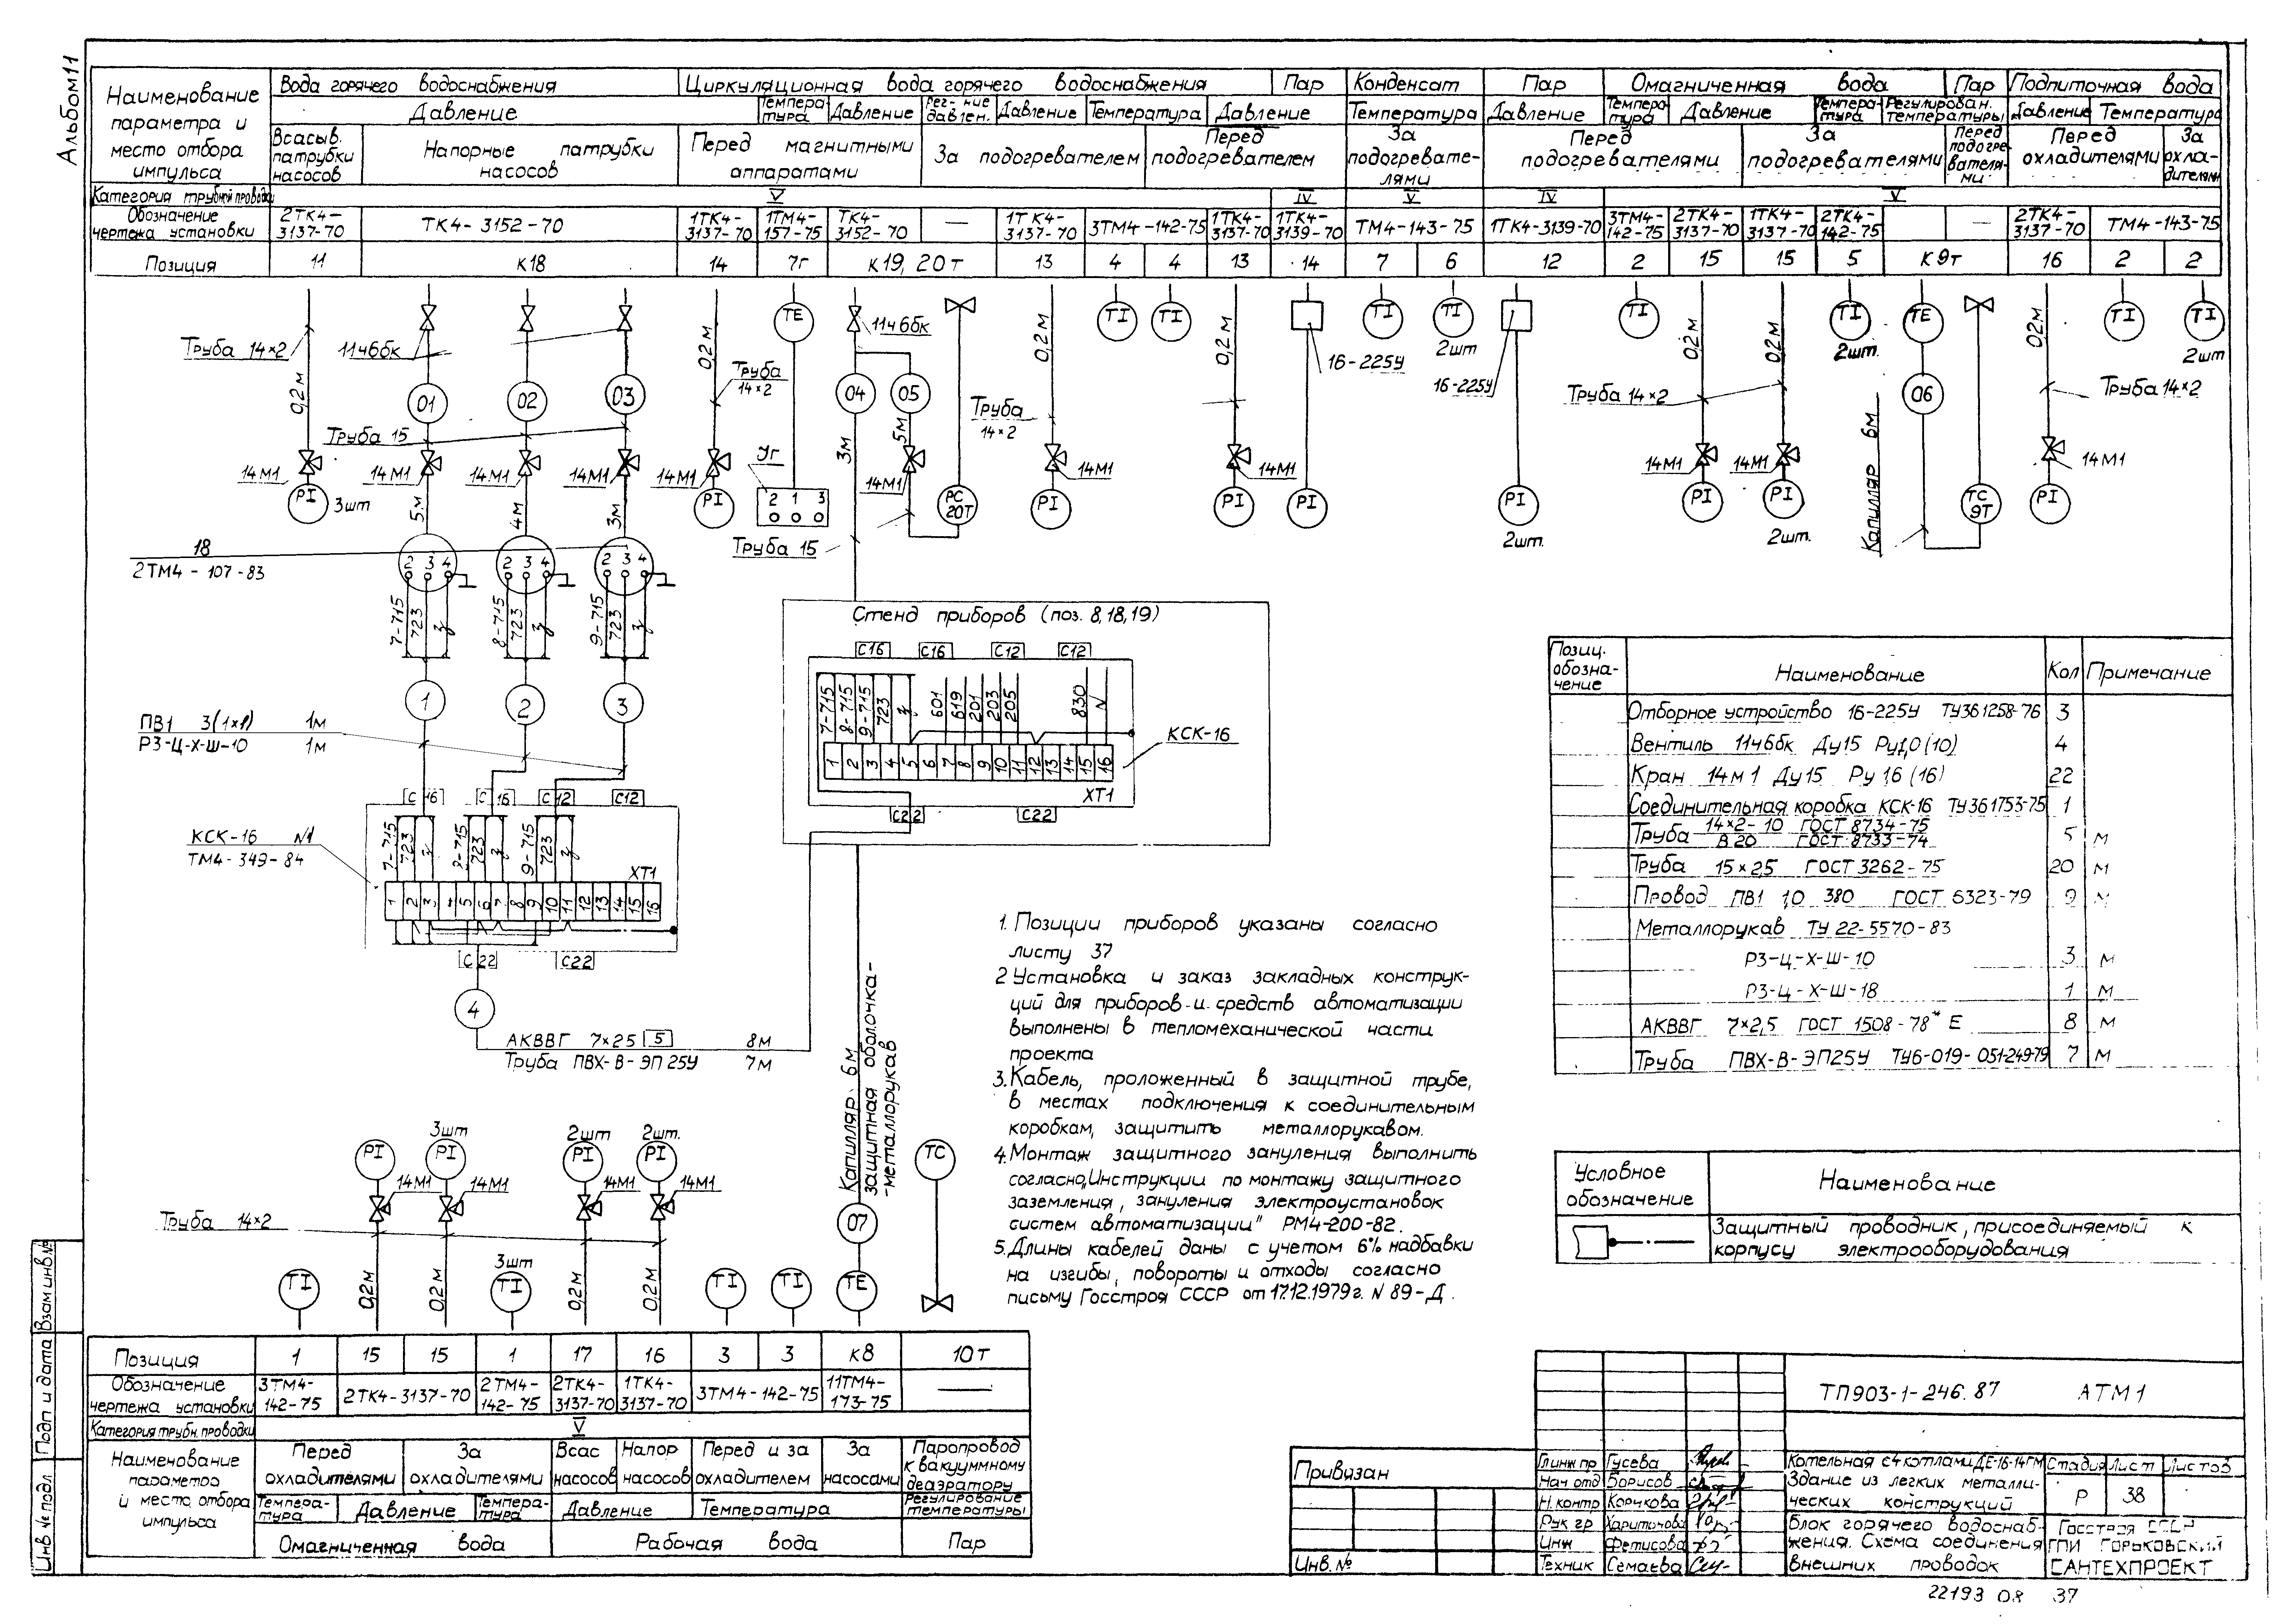 Альбом 11
Наименование параметра и место отбора импульса
Вода горячего водоснабжения
Циркуляционная вода горячего водоснабжения
Пар
Конденсат
Пар
Омагниченная вода
Пар
Подпиточная вода
Давление
Темпера-
тура
Давление
Рег-ние
давлен.
Давление
Температура
Давление
Температура
Давление
Темпера-
тура
Давление
Темпера-
тура
Регулирован.
температуры
Давление
Температура
Всасыв.
патрубки
насосов
Напорные патрубки
насосов
Перед магнитными
аппаратами
За подогревателем
Перед
подогревателем
За
подогревате-
лями
Перед
подогревателями
За
подогревателями
Перед
подогре-
вателя-
ми
Перед
охладителями
За
охла-
дителями
Категория трубной проводки
V
IV
V
IV
V
Обозначение
чертежа установки
2ТК4-
3137-70
ТК4-3152-70
1ТК4-
3137-70
1ТМ4-
157-75
ТК4-
3152-70
—
1ТК4-
3137-70
3ТМ4-142-75
1ТК4-
3137-70
1ТК4-
3139-70
ТМ4-143-75
1ТК4-3139-70
3ТМ4-
142-75
2ТК4-
3137-70
1ТК4-
3137-70
2ТК4-
142-75
—
2ТК4-
3137-70
ТМ4-143-75
Позиция
11
К18
14
7г
К19, 20т
13
4
4
13
14
7
6
12
2
15
15
5
К9т
16
2
2
Труба 14×2
0,2м
14М1
PI
3шт
11ч6бк
01
02
03
Труба 15
14М1
14М1
14М1
5м
4м
3м
18
2ТМ4-107-83
2 3 4
2 3 4
2 3 4
7-715
723
8-715
723
9-715
723
1
2
3
ПВ1 3(1×1) 1м
РЗ-Ц-Х-Ш-10 1м
С16
С16
С12
С12
КСК-16 N1
ТМ4-349-84
7-715
723
8-715
723
9-715
723
ХТ1
1 2 3 4 5 6 7 8 9 10 11 12 13 14 15 16
С22
С22
4
АКВВГ 7×25 5 8м
Труба ПВХ-В-ЭП25У 7м
0,2м
Труба
14×2
14М1
PI
TE
Уг
2 1 3
11ч6бк
04
05
3м
5м
14М1
Труба 15
РС
20Т
0,2м
Труба
14×2
14М1
PI
TI
TI
0,2м
14М1
PI
16-225У
PI
TI
TI
2шт
16-225У
PI
2шт.
TI
0,2м
0,2м
Труба 14×2
14М1
14М1
PI
PI
2шт.
TI
2шт.
TE
06
Капилляр 6м
ТС
9Т
0,2м
Труба 14×2
14М1
PI
TI
TI
2шт
Стенд приборов (поз. 8,18,19)
С16
С16
С12
С12
7-715
8-715
9-715
723
601
619
201
203
205
830
N
КСК-16
1 2 3 4 5 6 7 8 9 10 11 12 13 14 15 16
ХТ1
С22
С22
Капилляр 6м
защитная оболочка-
-металлорукав
07
TE
ТС
1. Позиции приборов указаны согласно
листу 37
2 Установка и заказ закладных конструк-
ций для приборов и средств автоматизации
выполнены в тепломеханической части
проекта
3. Кабель, проложенный в защитной трубе,
в местах подключения к соединительным
коробкам, защитить металлорукавом.
4. Монтаж защитного зануления выполнить
согласно „Инструкции по монтажу защитного
заземления, зануления электроустановок
систем автоматизации" РМ4-200-82.
5. Длины кабелей даны с учетом 6% надбавки
на изгибы, повороты и отходы согласно
письму Госстроя СССР от 17.12.1979г. N 89-Д.
Позиц.
обозна-
чение
Наименование
Кол
Примечание
Отборное устройство 16-225У ТУ361258-76 3
Вентиль 11ч6бк Ду15 Ру1,0 (10) 4
Кран 14м1 Ду15 Ру 16 (16) 22
Соединительная коробка КСК-16 ТУ361753-75 1
Труба 14×2-10 ГОСТ 8734-75
В 20 ГОСТ 8733-74 5 м
Труба 15×2,5 ГОСТ 3262-75 20 м
Провод ПВ1 1,0 380 ГОСТ 6323-79 9 м
Металлорукав ТУ 22-5570-83
РЗ-Ц-Х-Ш-10 3 м
РЗ-Ц-Х-Ш-18 1 м
АКВВГ 7×2,5 ГОСТ 1508-78* Е 8 м
Труба ПВХ-В-ЭП25У ТУ6-019-051-249-79 7 м
Условное
обозначение
Наименование
Защитный проводник, присоединяемый к
корпусу электрооборудования
PI
3шт
PI
2шт
PI
2шт.
PI
14М1
14М1
14М1
14М1
Труба 14×2
TI
0,2м
0,2м
3шт
TI
0,2м
0,2м
TI
TI
Позиция
1
15
15
1
17
16
3
3
К8
10т
Обозначение
чертежа установки
3ТМ4-
142-75
2ТК4-3137-70
2ТМ4-
142-75
2ТК4-
3137-70
1ТК4-
3137-70
3ТМ4-142-75
11ТМ4-
173-75
—
Категория трубн. проводки
V
Наименование
параметра
и место отбора
импульса
Перед
охладителями
За
охладителями
Всас
насосов
Напор
насосов
Перед и за
охладителем
За
насосами
Паропровод
к вакуумному
деаэратору
Темпера-
тура
Давление
Темпера-
тура
Давление
Температура
Регулирование
температуры
Омагниченная вода
Рабочая вода
Пар
Инв № подл
Подп и дата
Взам инв №
Привязан
Инв. №
ТП903-1-246.87 АТМ1
Гл инж пр Гусева
Нач отд Борисов
Н. контр Корчкова
Рук гр Харитонова
Инж Фетисова
Техник Семаева
Котельная с 4 котлами ДЕ-16-14ГМ
Здание из легких металли-
ческих конструкций
Стадия Лист Листов
Р 38
Блок горячего водоснаб-
жения. Схема соединения
внешних проводок
Госстрой СССР
ГПИ ГОРЬКОВСКИЙ
САНТЕХПРОЕКТ
22193 08 37